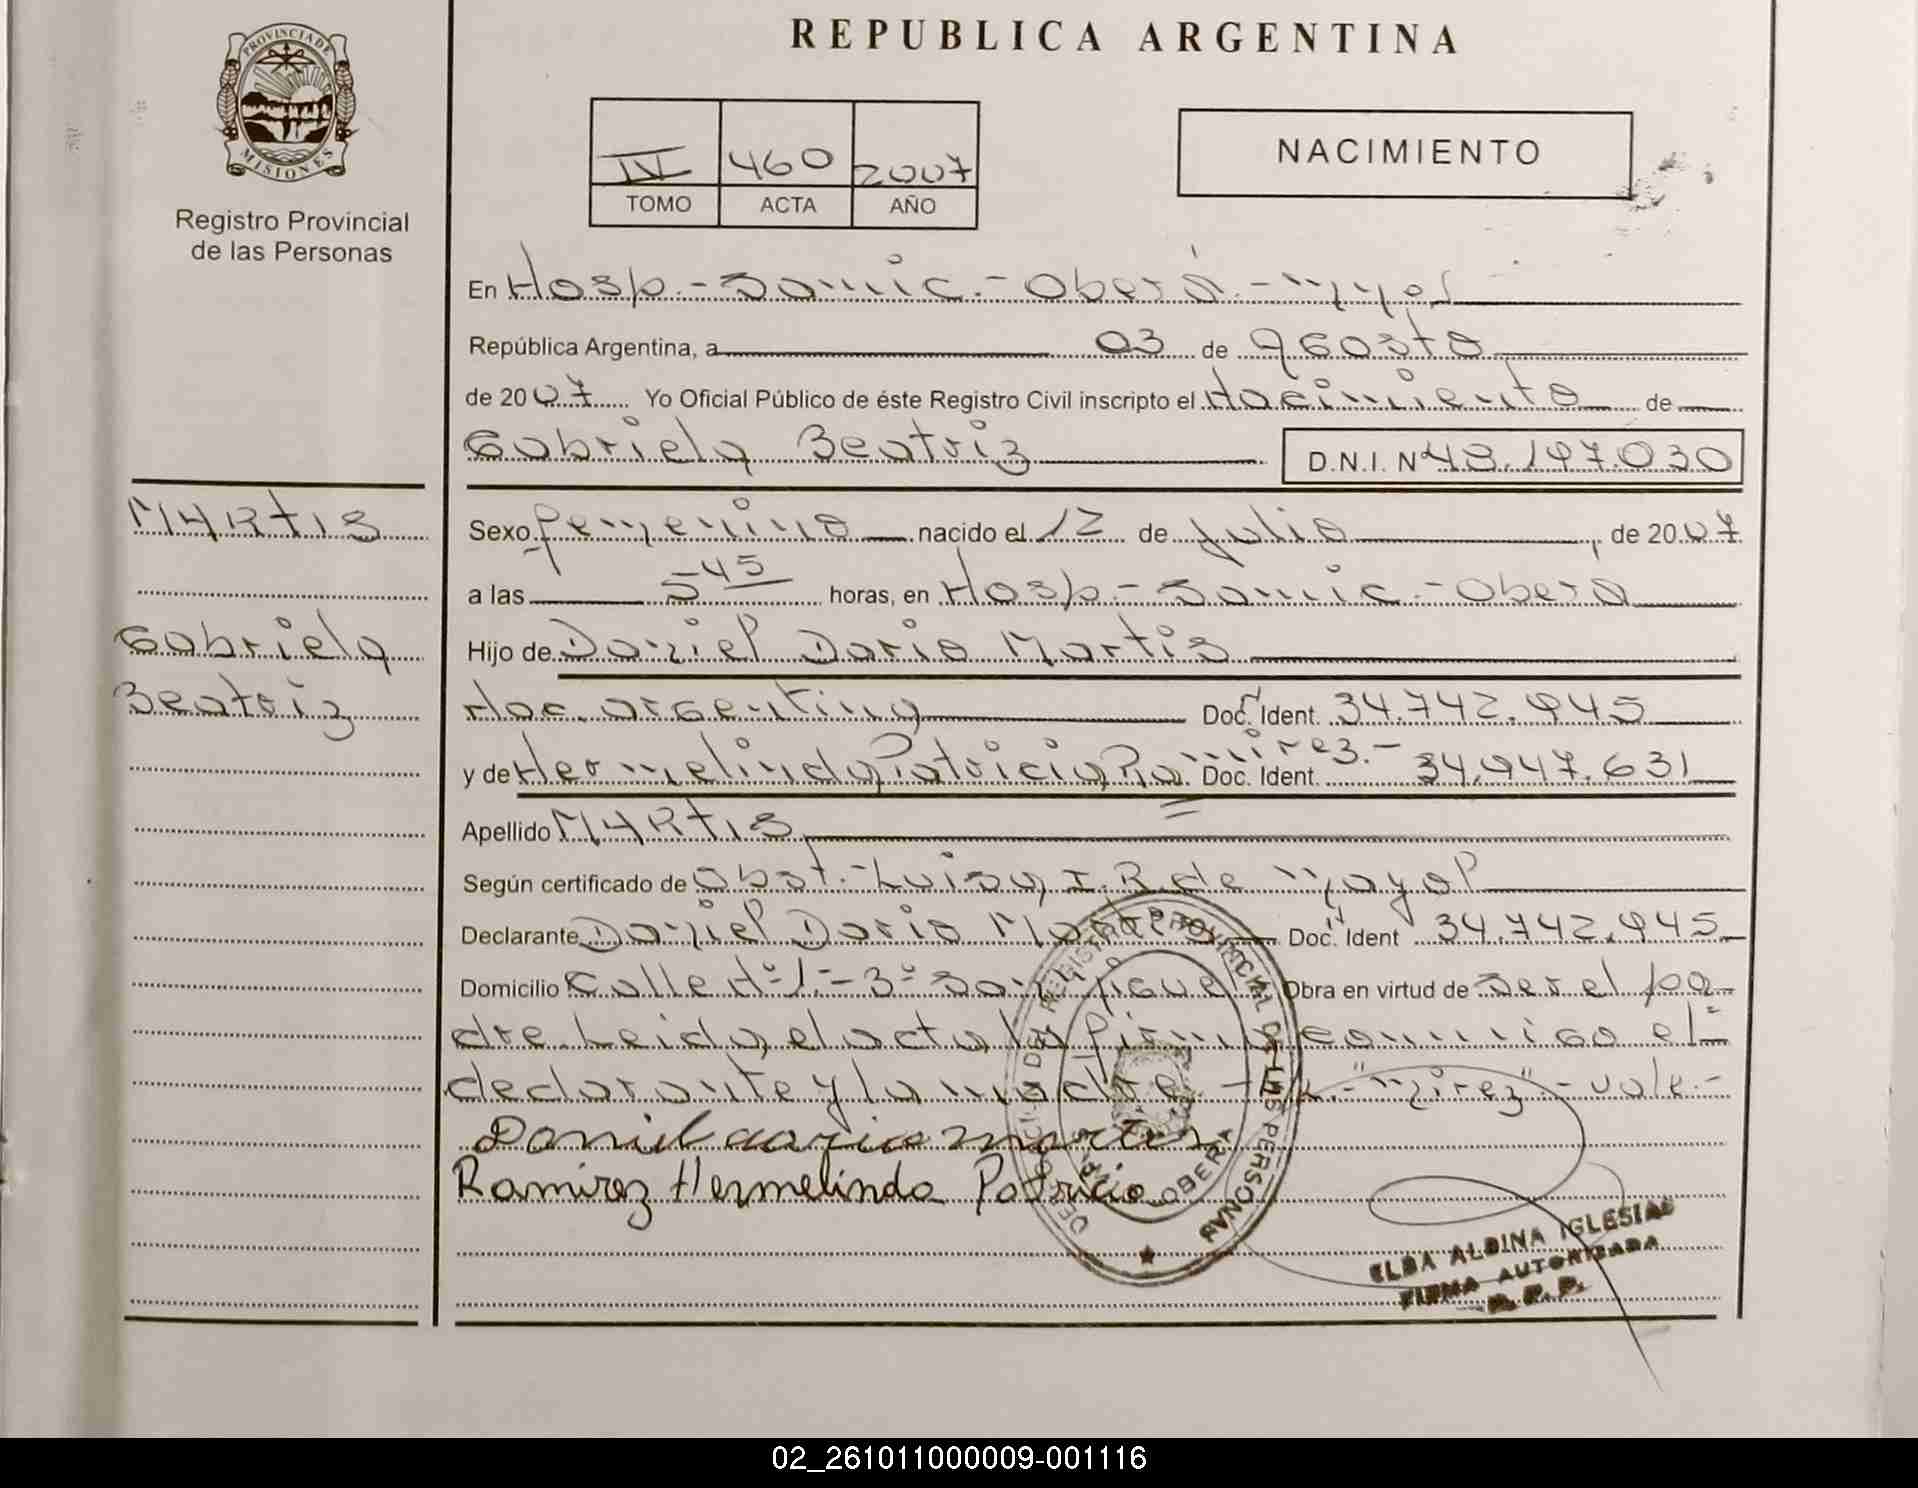 REPUBLICA ARGENTINA
PROVINCIA DE
MISIONES
Registro Provincial
de las Personas
IV 460 2007
TOMO ACTA AÑO
NACIMIENTO
En Hosp.- Samic.- Oberá.-
República Argentina, a 03 de Agosto
de 2007 Yo Oficial Público de éste Registro Civil inscripto el Nacimiento de
Gabriela Beatriz D.N.I. Nº 48.197.030
MARTIS
Gabriela
Beatriz
Sexo femenino nacido el 12 de julio, de 2007
a las 5 45 horas, en Hosp.- Samic.- Oberá
Hijo de Daniel Dario Martis
Nac. argentina Doc. Ident. 34.742.945
y de Hermelinda Patricia Ramirez.- Doc. Ident. 34.947.631
Apellido MARTIS
Según certificado de Obst.- Luisa I. R. de Mayol
Declarante Daniel Dario Martis Doc. Ident 34.742.945
Domicilio Calle Nº 1.- 3º San Miguel Obra en virtud de ser el pa-
dre. Leida el acta la firma conmigo el
declarante y la madre - "mirez" - vale.-
Daniel dario martis
Ramirez Hermelinda Patricia
REGISTRO PROVINCIAL DE LAS PERSONAS
OBERA
ELBA ALDINA IGLESIAS
FIRMA AUTORIZADA
R. P. P.
02_261011000009-001116